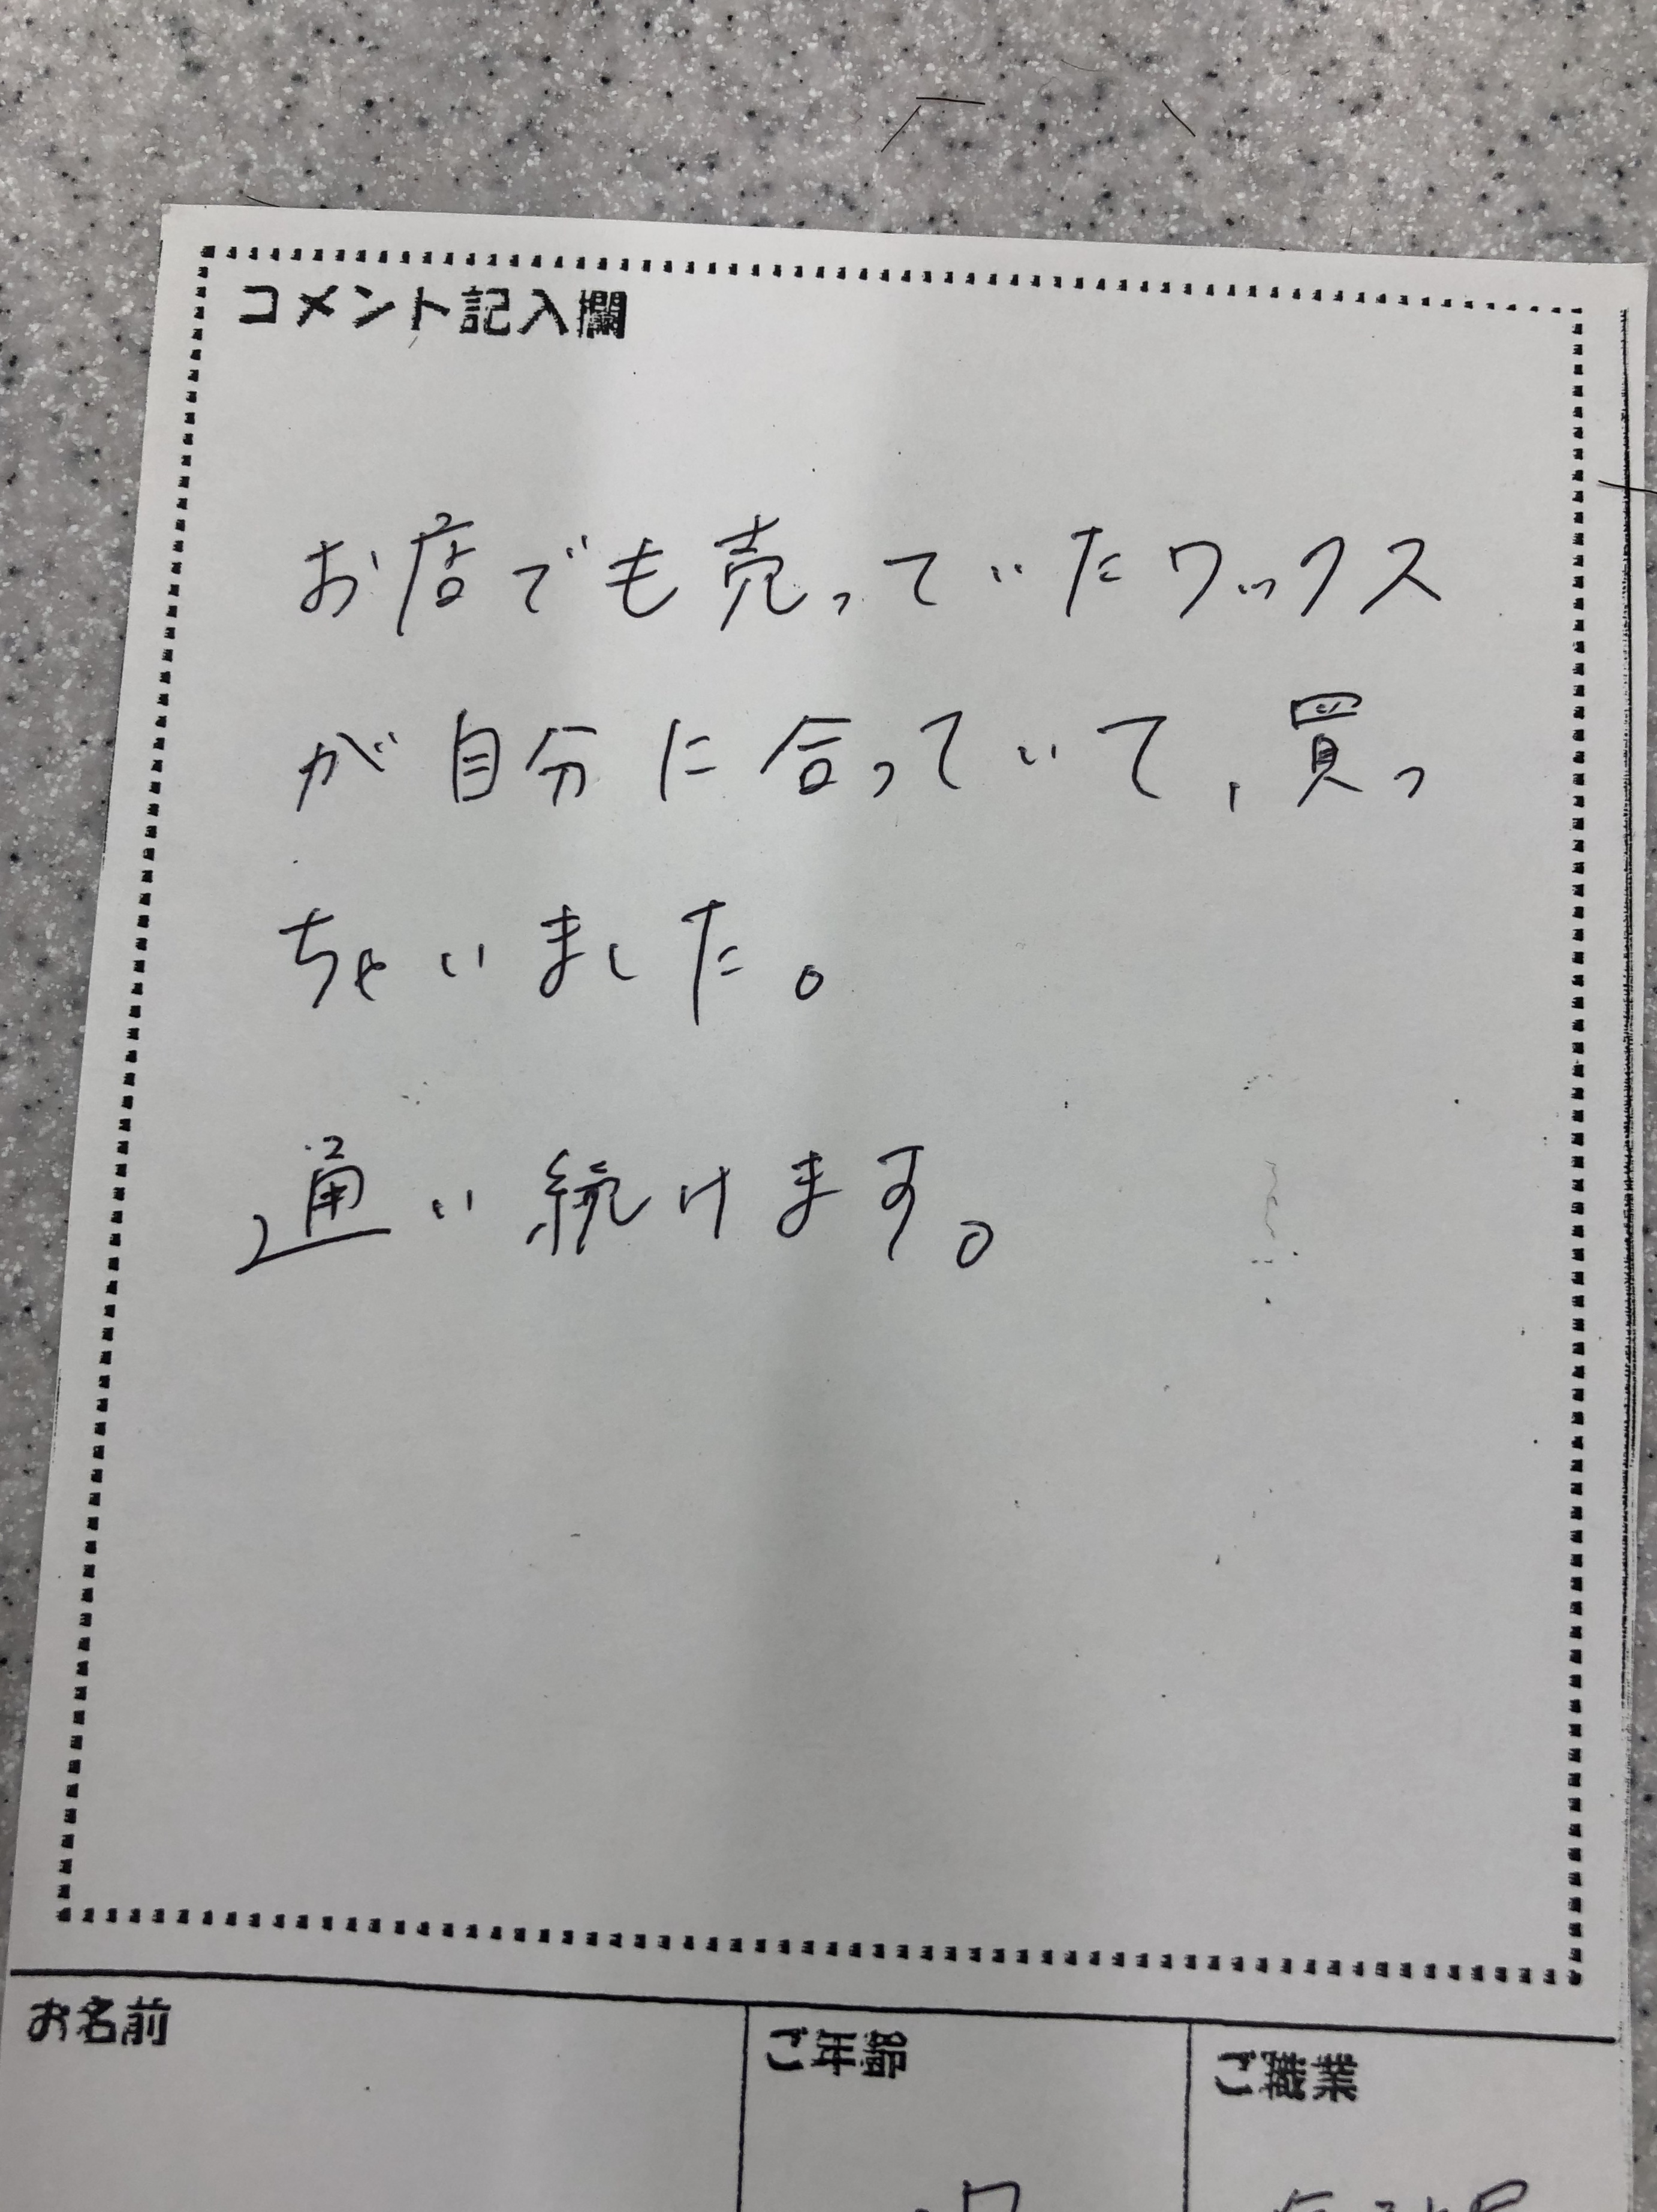 コメント記入欄
お店でも売っていたワックス
が自分に合っていて、買っ
ちゃいました。
通い続けます。
お名前
ご年齢
ご職業